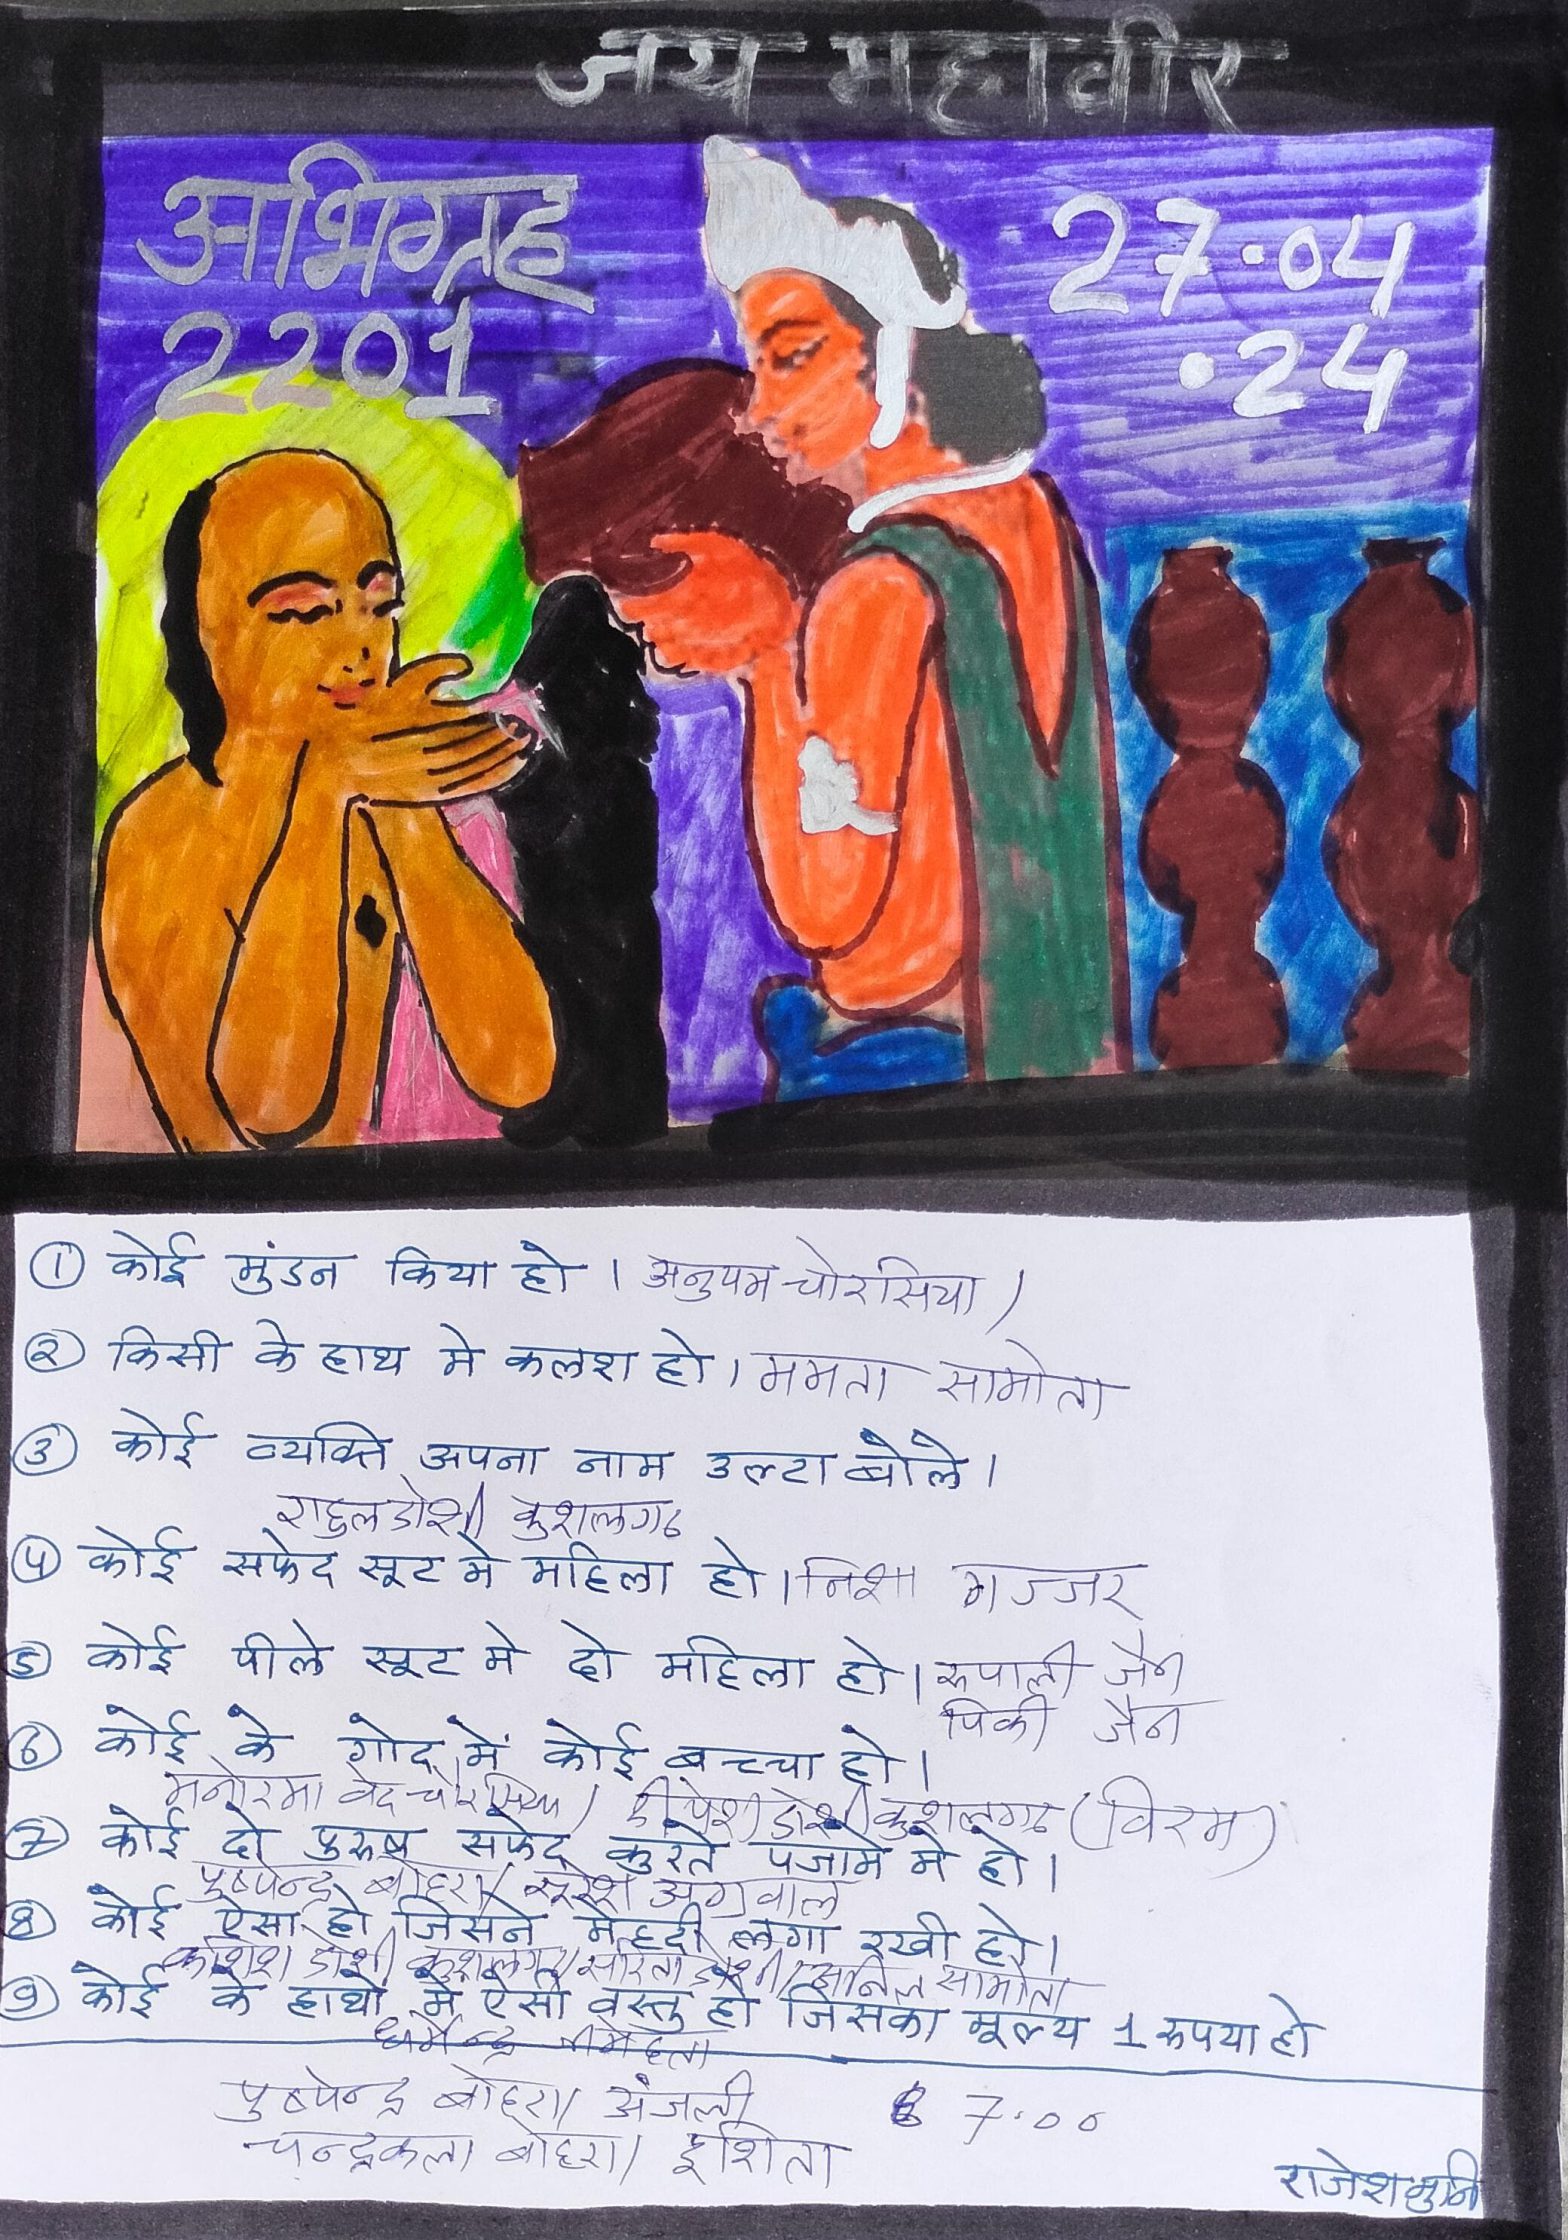 जय महावीर
अभिग्रह
2201
27.04
.24
① कोई मुंडन किया हो । अनुपम चोरसिया /
② किसी के हाथ मे कलश हो । ममता सामोता
③ कोई व्यक्ति अपना नाम उल्टा बोले ।
राहुल डोशी / कुशलगढ
④ कोई सफेद सूट मे महिला हो । निशा गज्जर
⑤ कोई पीले सूट मे दो महिला हो । रूपाली जैन
पिंकी जैन
⑥ कोई के गोद में कोई बच्चा हो ।
मनोरमा वेद चोरसिया / डोशी कुशलगढ (विरम)
⑦ कोई दो पुरुष सफेद कुरते पजामे मे हो ।
पुष्पेन्द्र बोहरा / सुरेश अग्रवाल
⑧ कोई ऐसा हो जिसने मेहदी लगा रखी हो ।
डोशी कुशलगढ / सरिता डोशी / अनिल सामोता
⑨ कोई के हाथो मे ऐसी वस्तु हो जिसका मूल्य 1 रुपया हो
धर्मेन्द्र
पुष्पेन्द्र बोहरा / अंजली 7.00
चन्द्रकला बोहरा / इशिता
राजेश मुनि